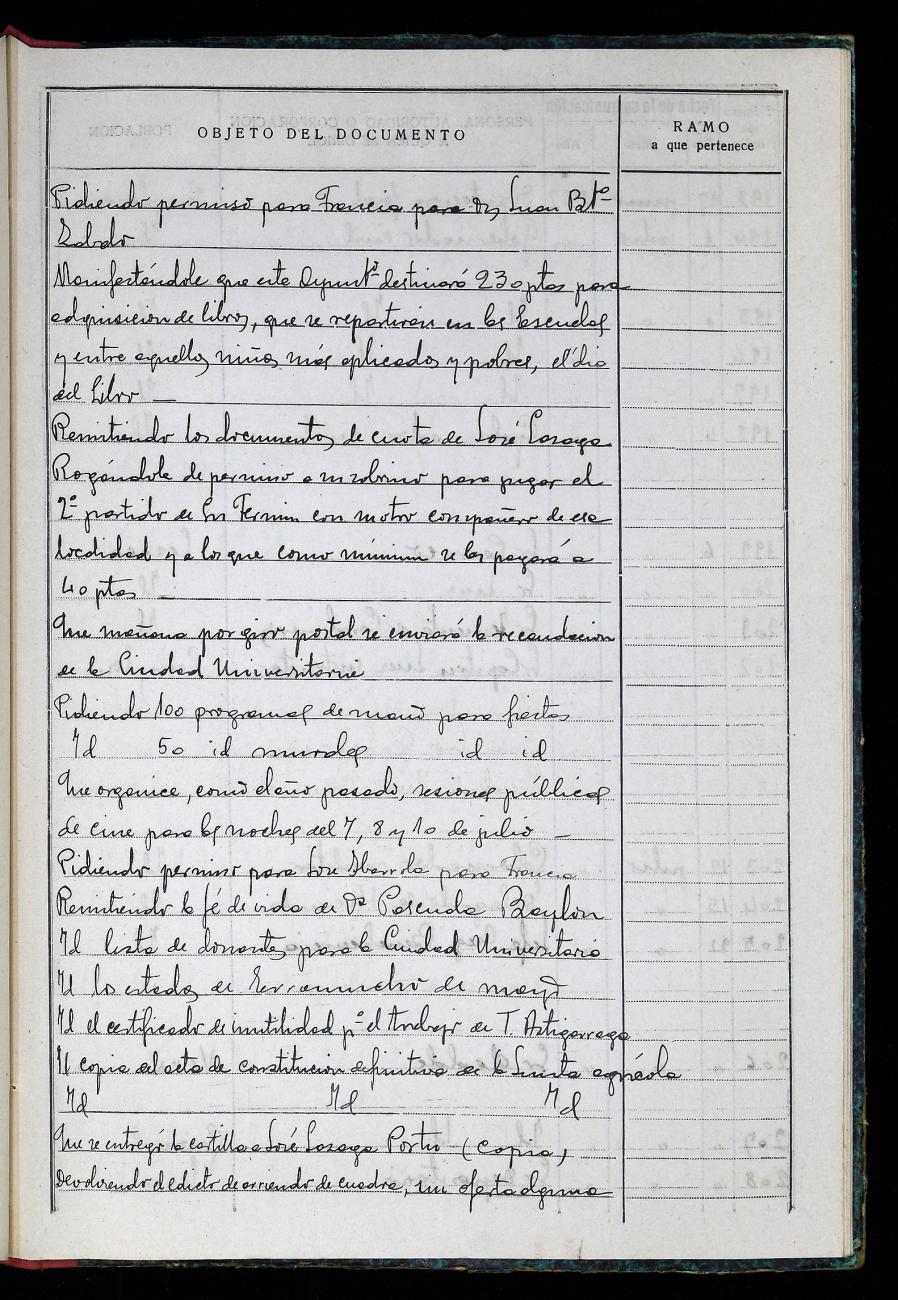 OBJETO DEL DOCUMENTO
RAMO
a que pertenece
Pidiendo permiso para Francia para Dn Juan Bta
Manifestándole que este Ayuntº destinará 230 ptas para
adquisicion de libros, que se repartiran en las Escuelas
y entre aquellos niños más aplicados y pobres, el dia
del Libro —
Remitiendo los documentos de cuota de José Lasaga
Rogándole de permiso a su sobrino para jugar el
2º partido de Sn Fermin con motro compañero de esa
localidad y a los que como minimum se les pagará a
40 ptas —
Que mañana por giro postal se enviará la recaudacion
de la Ciudad Universitaria
Pidiendo 100 programas de mano para fiestas
Id 50 id murales id id
Que organice, como el año pasado, sesiones públicas
de cine para las noches del 7, 8 y 10 de julio —
Pidiendo permiso para José Ibarrola para Francia
Remitiendo la fé de vida de Dª Pascuala Baylon
Id lista de donantes para la Ciudad Universitaria
Id los estados de de mayo
Id el certificado de inutilidad pª el trabajo de T. Astigarraga
Id copia del acta de constitucion definitiva de la Junta agrícola
Id Id Id
Que se entregó la cartilla a José Lasaga Portu (copia)
Devolviendo el edicto de arriendo de cuadra, sin oferta alguna